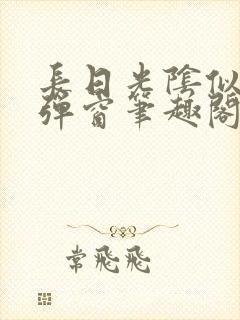 長日光陰似
彈窗筆趣閣
常飛飛